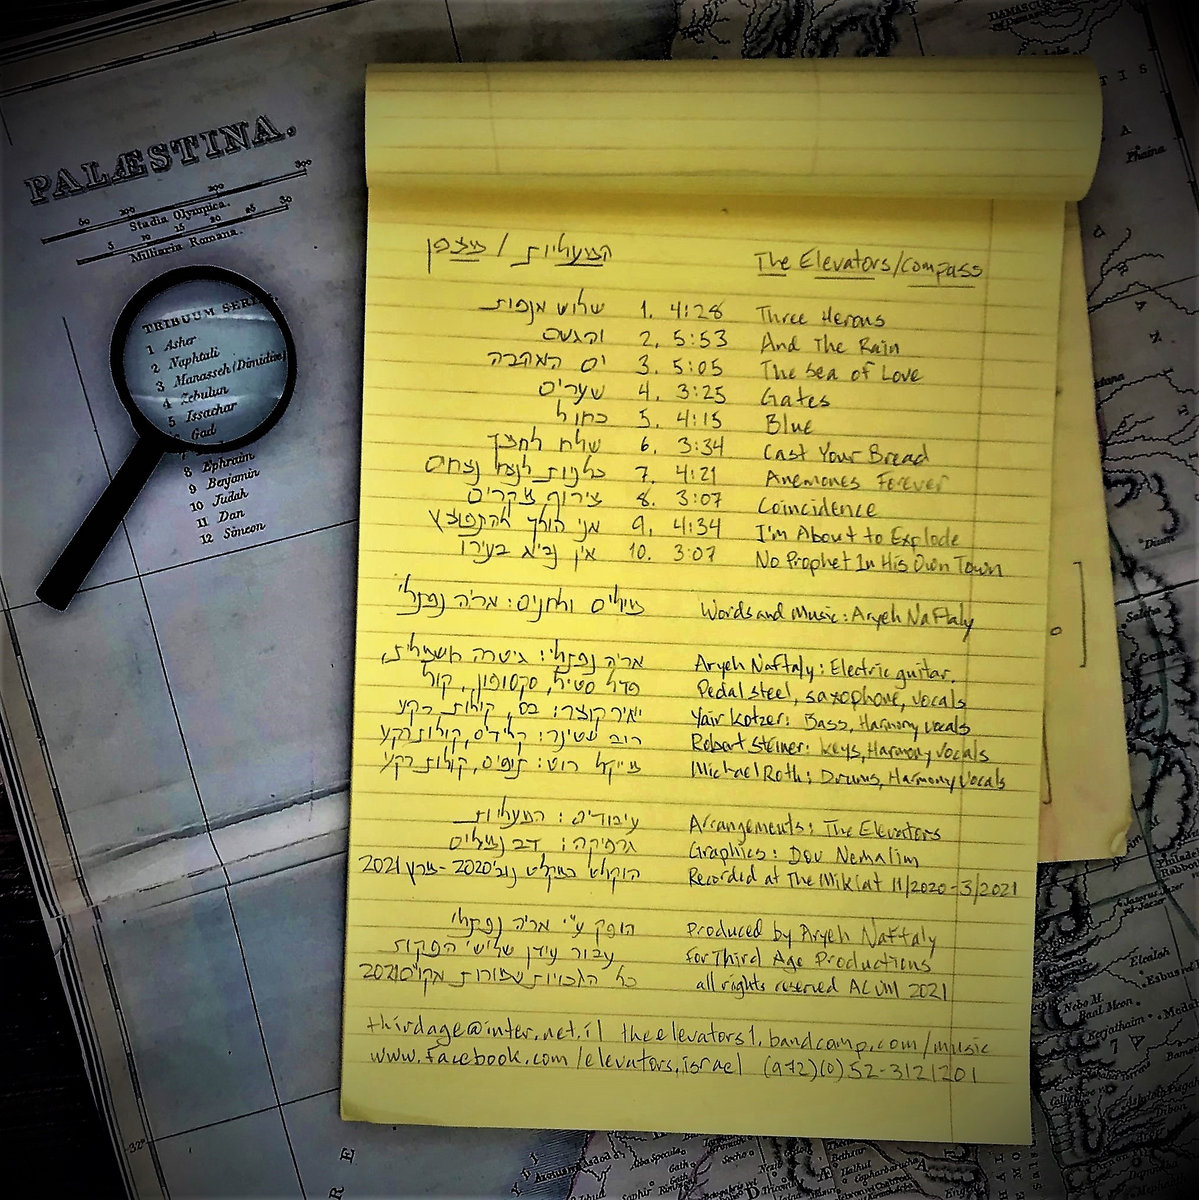 PALÆSTINA.
50 200 200 300
Stadia Olympica.
5 10 15 20 25 30
Milliaria Romana.
TRIBUUM SERI
1 Asher
2 Naphtali
3 Manasseh (Dimidia)
4 Zebulun
5 Issachar
Gad
8 Ephraim
9 Benjamin
10 Judah
11 Dan
12 Simeon
32°
המעליות / מצפן The Elevators/Compass
שלוש אנפות 1. 4:28 Three Herons
והגשם 2. 5:53 And The Rain
ים האהבה 3. 5:05 The Sea of Love
שערים 4. 3:25 Gates
כחול 5. 4:15 Blue
שלח לחמך 6. 3:34 Cast Your Bread
כלניות לנצח נצחים 7. 4:21 Anemones Forever
צירוף מקרים 8. 3:07 Coincidence
אני הולך להתפוצץ 9. 4:34 I'm About to Explode
אין נביא בעירו 10. 3:07 No Prophet In His Own Town
מילים ולחנים: אריה נפתלי Words and Music: Aryeh Naftaly
אריה נפתלי: גיטרה חשמלית, Aryeh Naftaly: Electric guitar,
פדל סטיל, סקסופון, קול Pedal steel, saxophone, vocals
יאיר קוצר: בס, קולות רקע Yair Kotzer: Bass, Harmony vocals
רוב שטיינר: קלידים, קולות רקע Robert Steiner: Keys, Harmony Vocals
מייקל רוט: תופים, קולות רקע Michael Roth: Drums, Harmony Vocals
עיבודים: המעליות Arrangements: The Elevators
גרפיקה: דב נמלים Graphics: Dov Nemalim
הוקלט במקלט נוב' 2020 - מרץ 2021 Recorded at The Miklat 11/2020-3/2021
הופק ע"י אריה נפתלי Produced by Aryeh Naftaly
עבור עידן שלישי הפקות for Third Age Productions
כל הזכויות שמורות אקו"ם 2021 all rights reserved ACUM 2021
thirdage@inter.net.il theelevators1.bandcamp.com/music
www.facebook.com/elevators.israel (972)(0)52-3121201
Phaina
Elealah
Nebo M.
Baal Meon
Kerjathaim
Dibon
Gath
Halhul